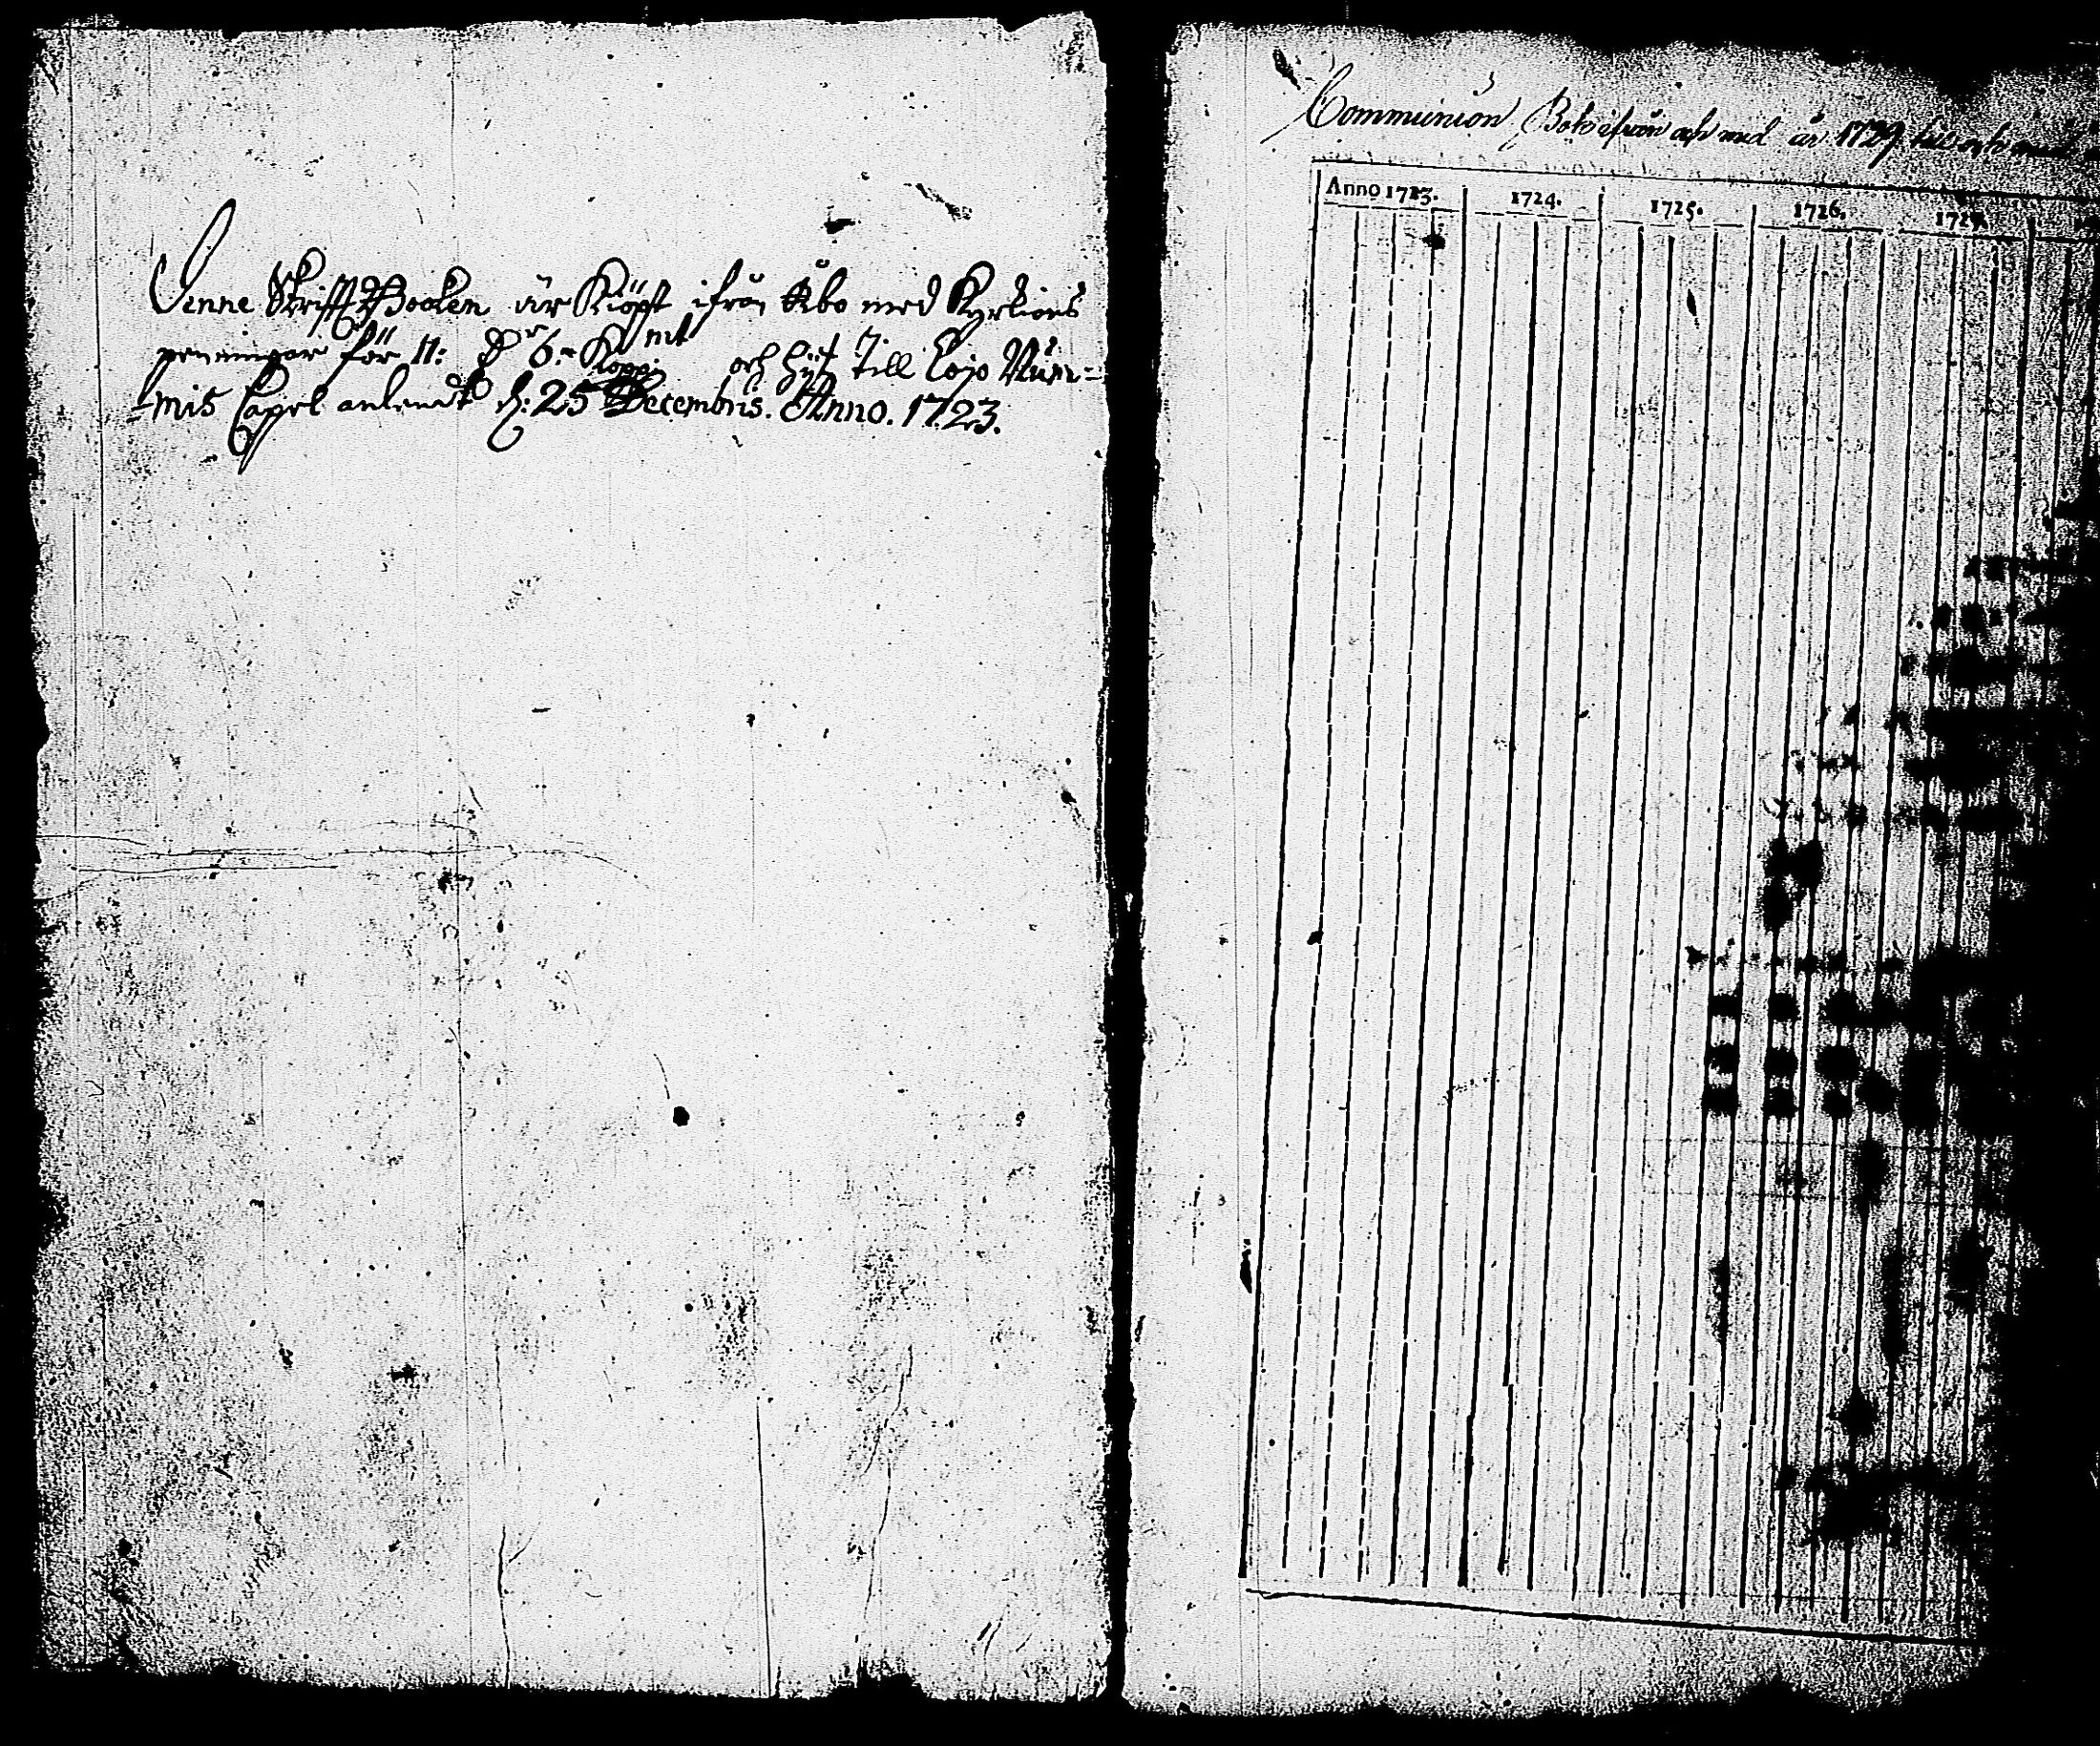 Denne Skrifft Booken är Kiöpt ifrån Åbo med Kyrkiones
penningar för 11: D:r 6: Kopp: mt och hijt Till Lojo Num-
=mis Capel anlendt d: 25 Decembris. Anno. 1723.
Communion Bok ifrån och med år 1729 till och med
Anno 1723. 1724. 1725. 1726. 1727.